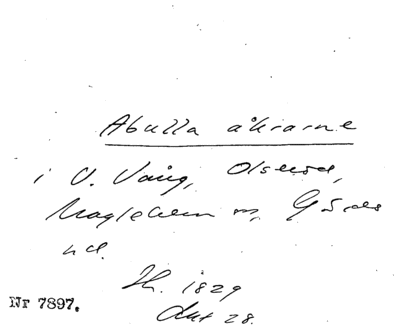 Abulla åkrarne
i V. Vång, Olseröd,
Maglehem s, Gärds
hd.
H. 1829
Akt 28.
Nr 7897.